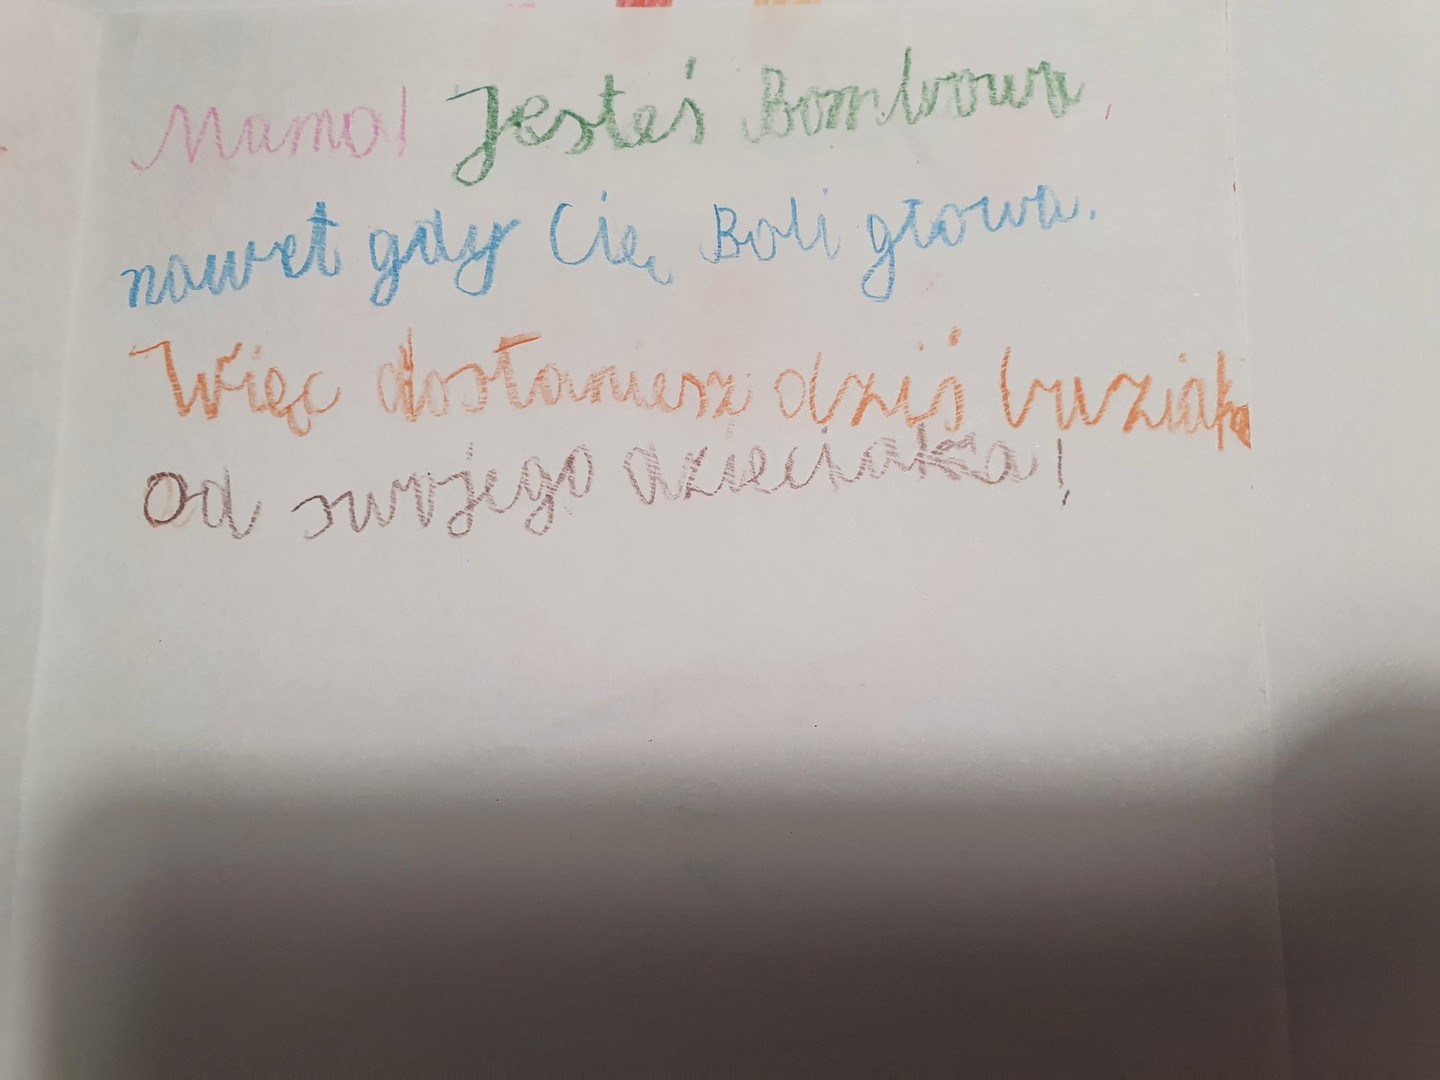 Mamo! Jesteś Bombowa,
nawet gdy Cię Boli głowa.
Więc dostaniesz dziś buziaka
Od swojego dzieciaka!